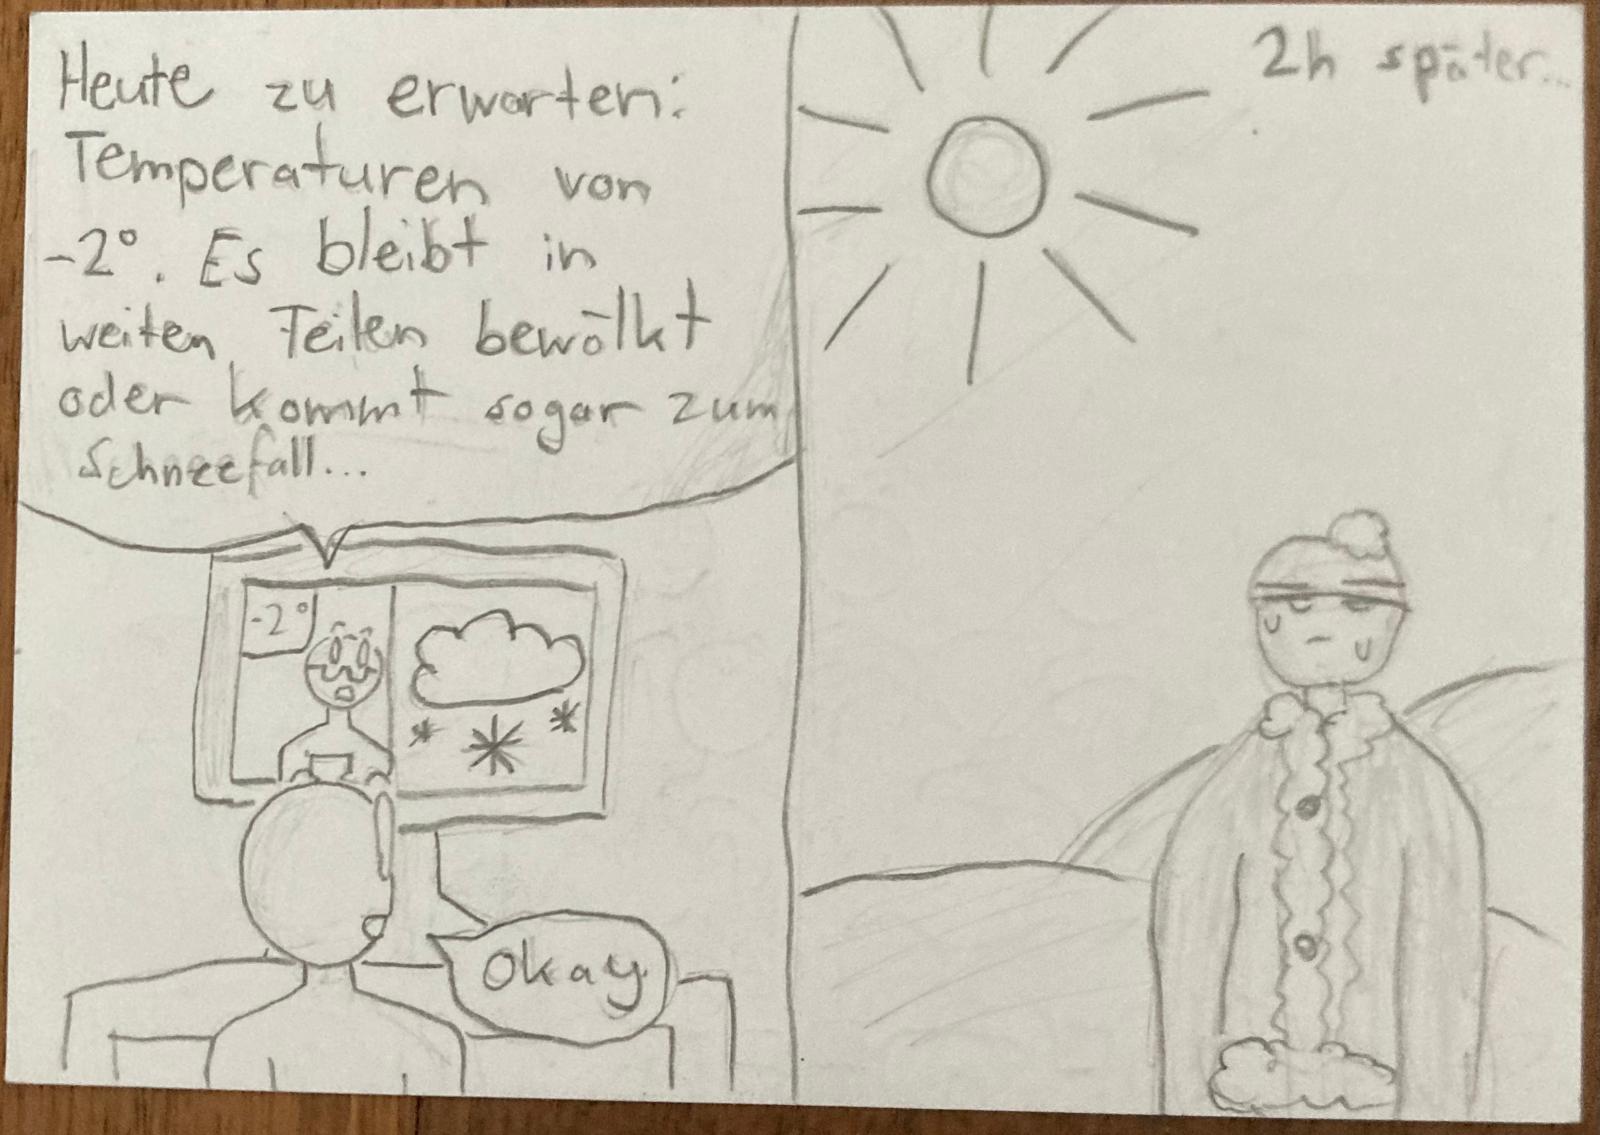 Heute zu erwarten:
Temperaturen von
-2°. Es bleibt in
weiten Teilen bewölkt
oder kommt sogar zum
Schneefall...
-2°
Okay
2h später...